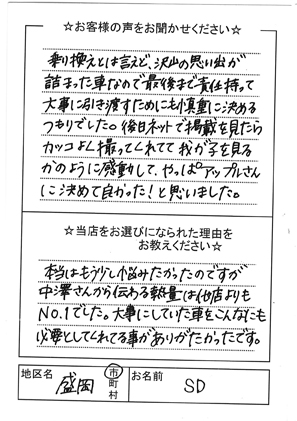 ☆お客様の声をお聞かせください☆
乗り換えとは言えど、沢山の思い出が
詰まった車なので最後まで責任持って
大事に引き渡すためにも慎重に決める
つもりでした。後日ネットで掲載を見たら
カッコよく撮ってくれてて我が子を見る
かのように感動して、やっぱアップルさん
に決めて良かった!と思いました。
☆当店をお選びになられた理由を
お教えください☆
本当はもう少し悩みたかったのですが
中澤さんから伝わる熱量は他店よりも
NO.1でした。大事にしていた車をこんなにも
必要としてくれてる事がありがたかったです。
地区名 盛岡 市町村 お名前 SD